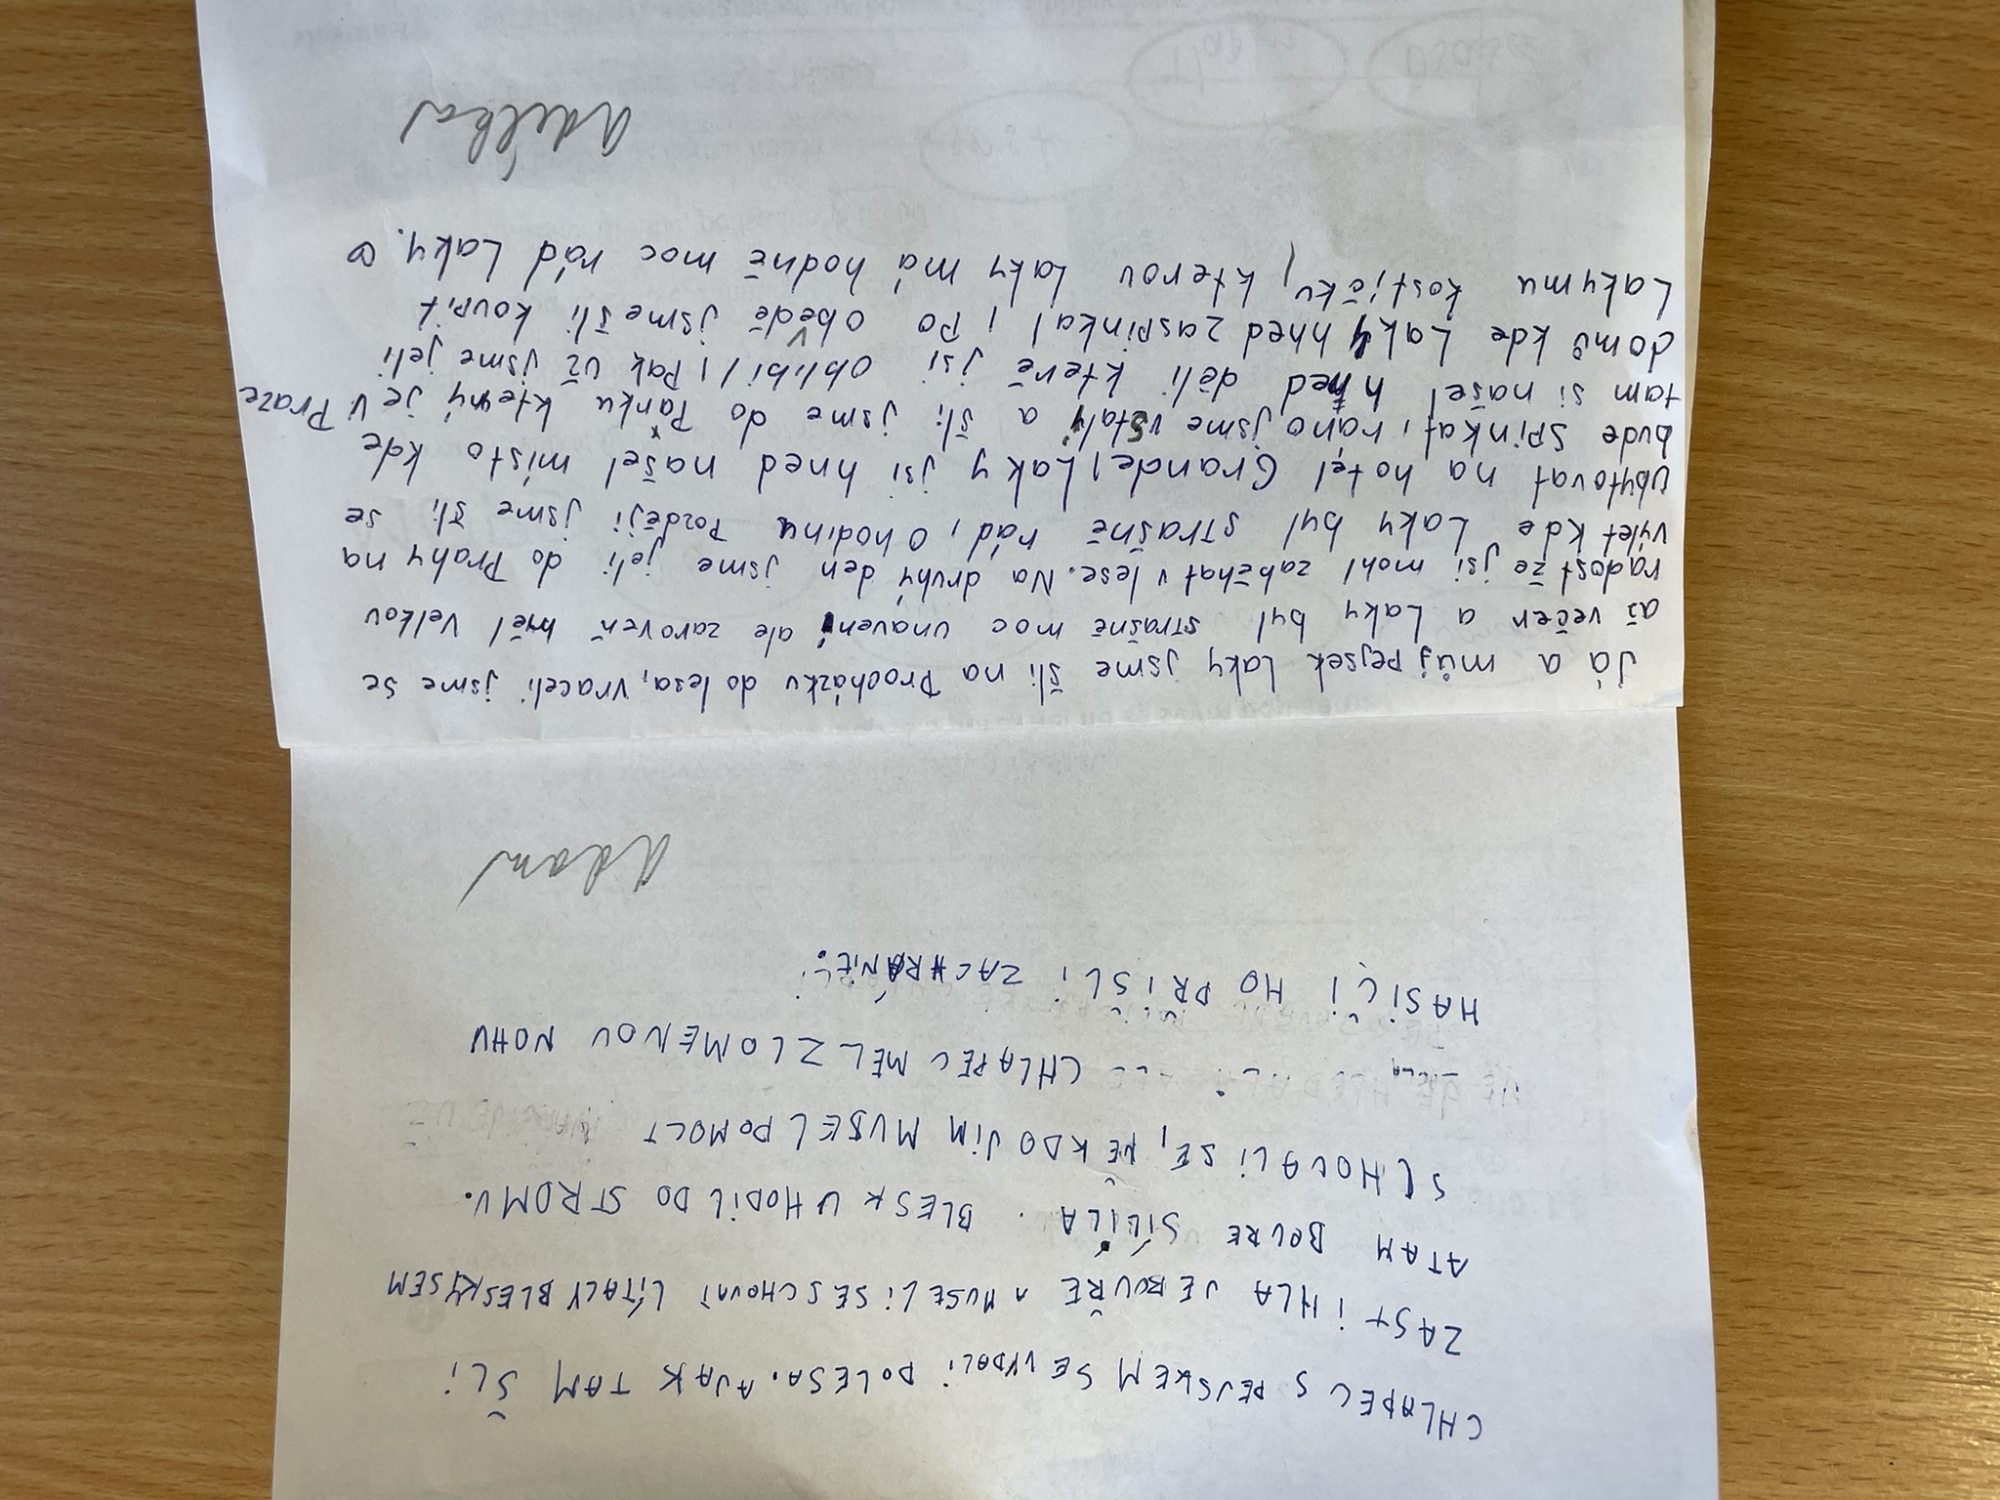 CHLAPEC S PEJSKEM SE VYDALI DO LESA. A JAK TAM ŠLI
ZASTIHLA JE BOUŘE A MUSELI SE SCHOVAT LÍTALY BLESKY SEM
A TAM BOURE SÍLILA. BLESK UHODIL DO STROMU.
SCHOVALI SE, NĚKDO JIM MUSEL POMOCT
CHLAPEC MEL ZLOMENOU NOHU
HASIČI HO PŘIŠLI ZACHRÁNIT.
Adam
Já a můj pejsek Laky jsme šli na Procházku do lesa, vraceli jsme se
až večer a Laky byl strašně moc unavení ale zaroveň měl velkou
radost že jsi mohl zaběhat v lese. Na druhý den jsme jeli do Prahy na
výlet kde Laky byl strašně rád, O hodinu Později jsme šli se
ubytovat na hotel Grande, Laky jsi hned našel místo kde
bude spinkat, ráno jsme vstaly a šli jsme do Parku který je v Praze
tam si našel hned děli kteře jsi oblíbil, Pak už jsme jeli
domů kde Laky hned zaspinkal, Po obědě jsme šli koupit
Lakymu kostičku, kterou Laky má hodně moc rád Laky. ♡
Adélka